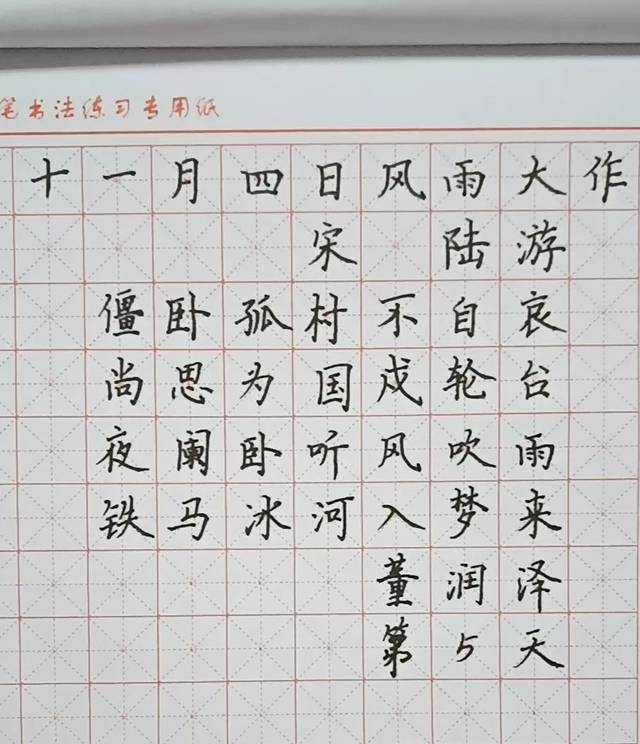 笔书法练习专用纸
十一月四日风雨大作
宋 陆游
僵卧孤村不自哀
尚思为国戍轮台
夜阑卧听风吹雨
铁马冰河入梦来
董润泽
第5天